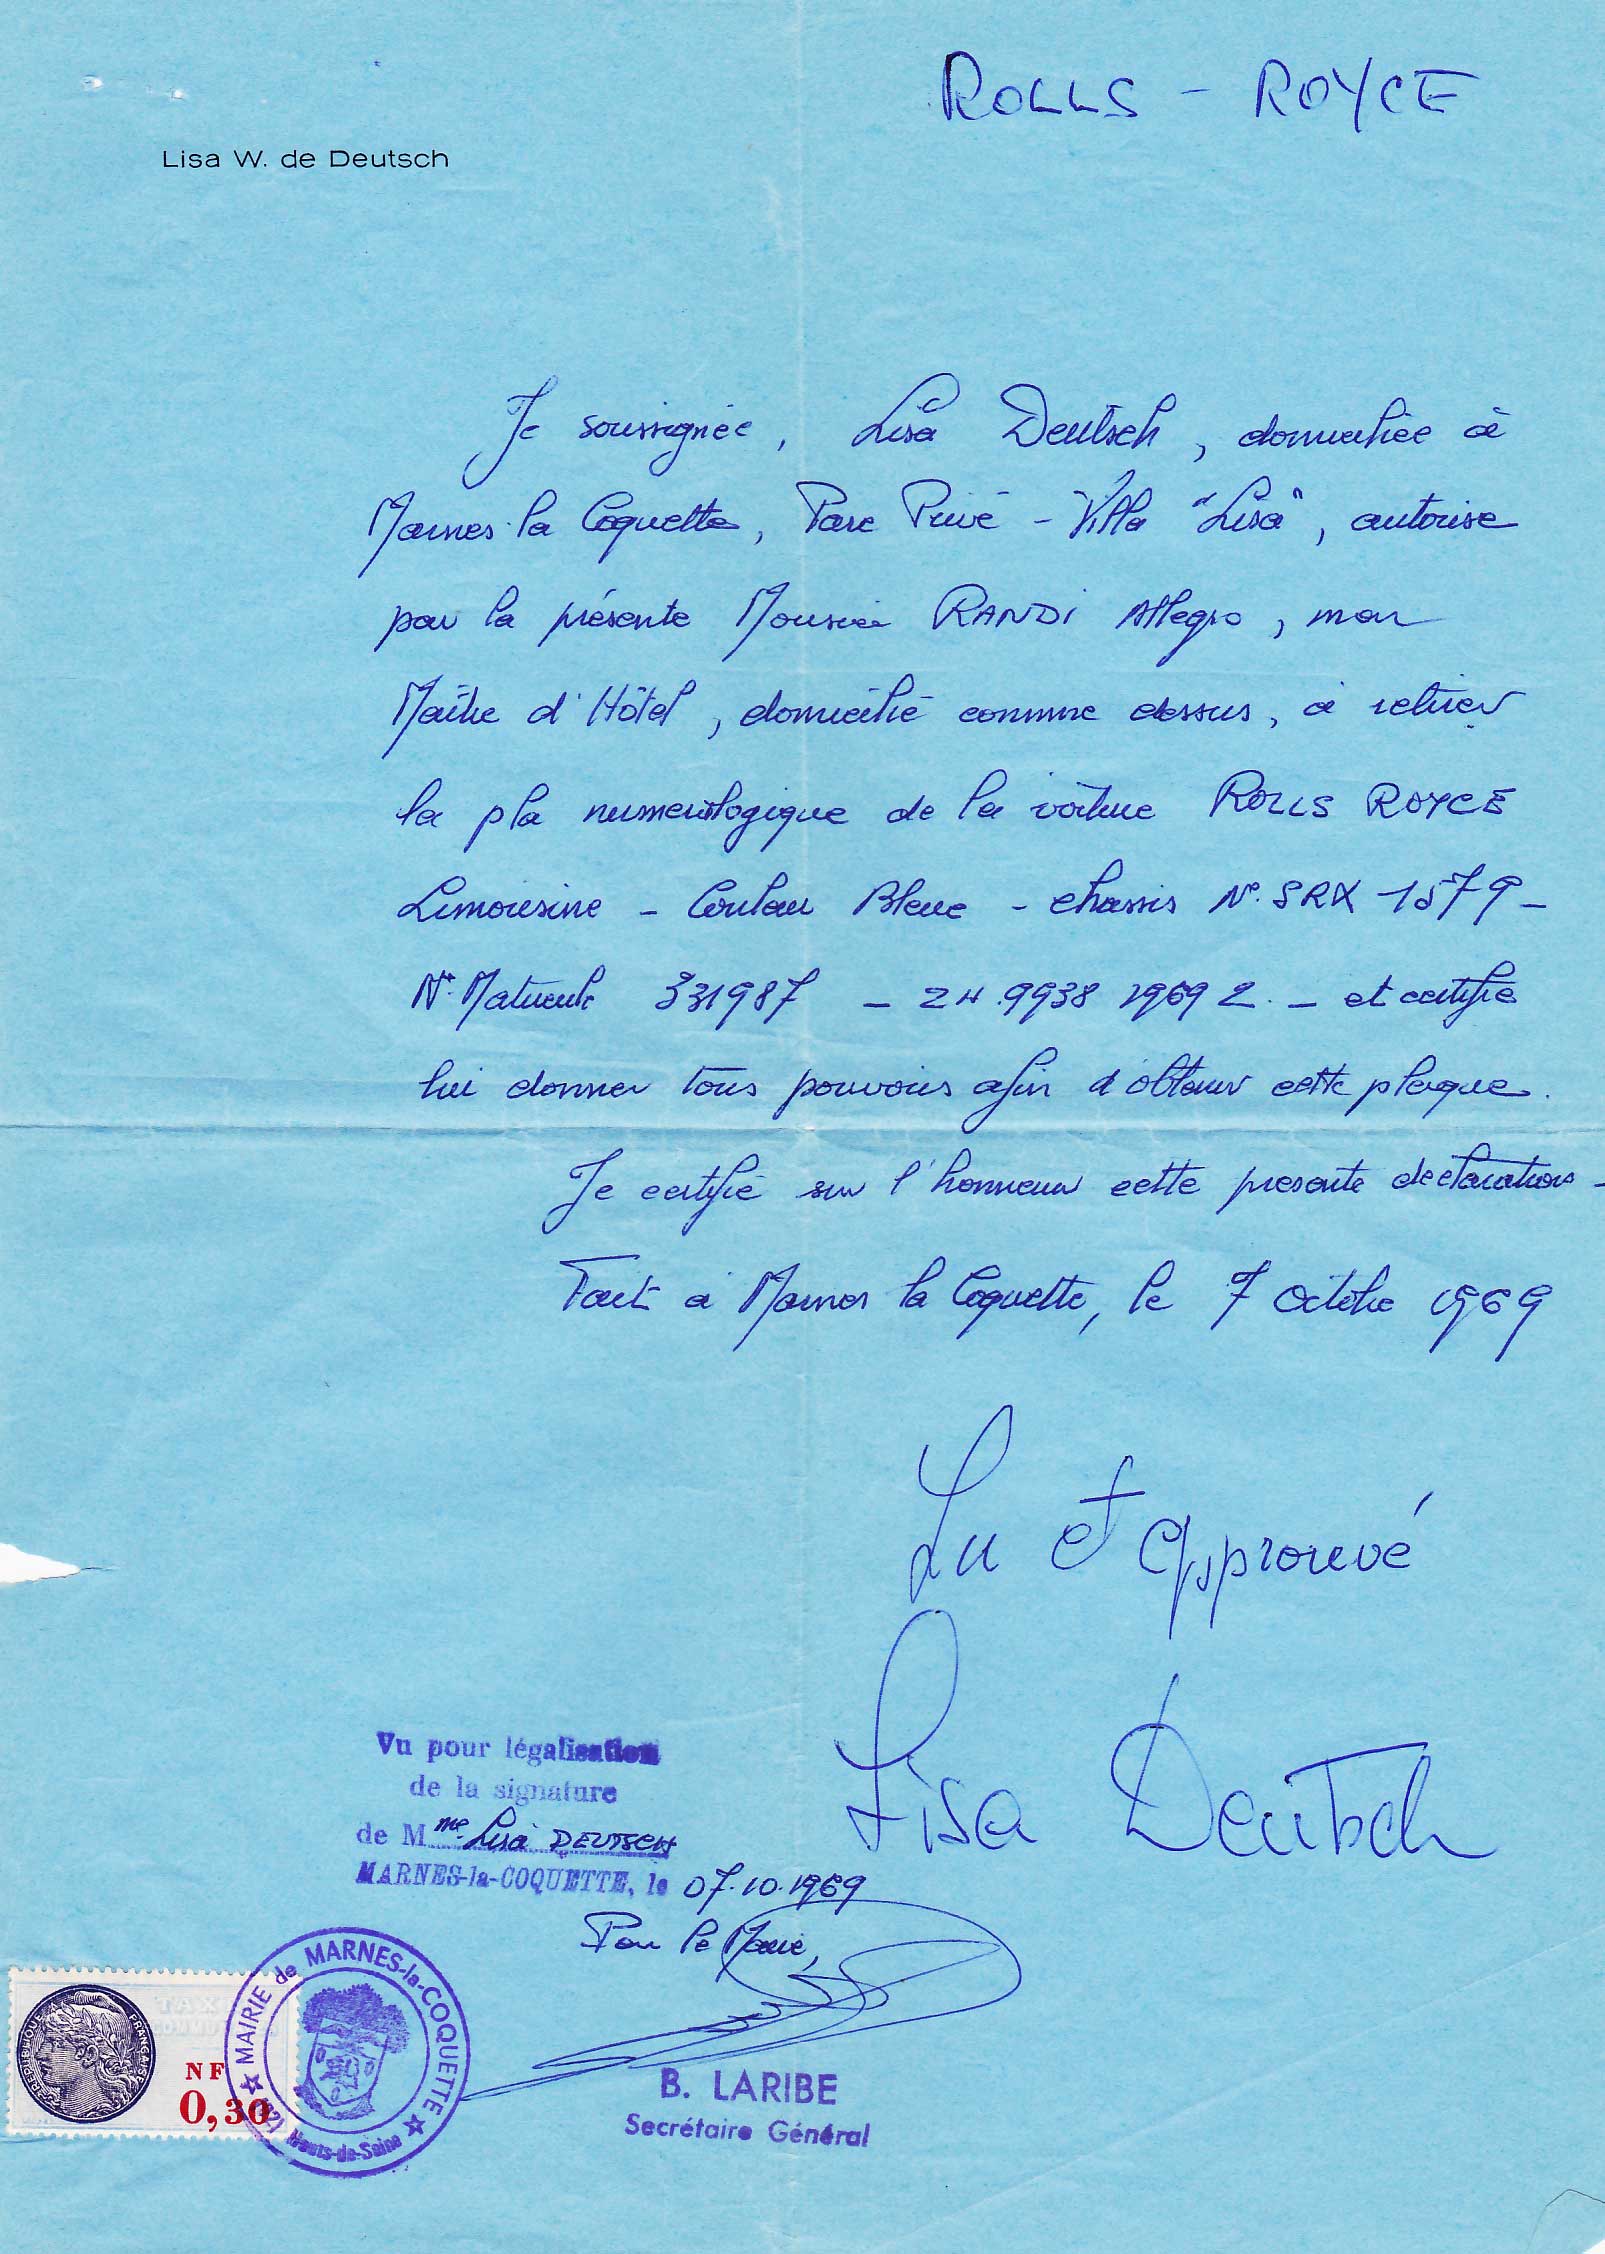 ROLLS - ROYCE
Lisa W. de Deutsch
Je soussignée, Lisa Deutsch, domiciliée à
Marnes la Coquette, Parc Privé - Villa "Lisa", autorise
par la présente Monsieur RANDI Allegro, mon
Maître d'Hôtel, domicilié comme dessus, à retirer
la pla numerologique de la voiture ROLLS ROYCE
Limousine - Couleur Bleue - chassis N° SRX 1579 -
N° Matricule 331987 - 24.9938 1969 2. - et certifie
lui donner tous pouvoirs afin d'obtenir cette plaque.
Je certifie sur l'honneur cette presente declaration -
Fait à Marnes la Coquette, le 7 Octobre 1969
Lu et approuvé
Lisa Deutsch
Vu pour légalisation
de la signature
de Mme Lisa DEUTSCH
MARNES-la-COQUETTE, le 07.10.1969
Pour le Maire,
B. LARIBE
Secrétaire Général
MAIRIE de MARNES-la-COQUETTE
Hauts-de-Seine
REPUBLIQUE FRANÇAISE
NF
0,30